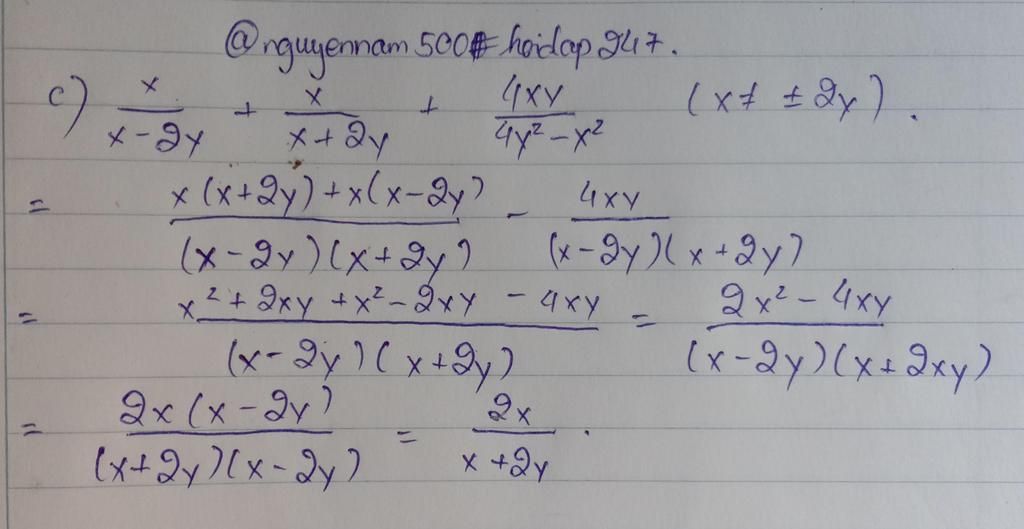 @nguyennam500#hoidap247.
c) x/(x-2y) + x/(x+2y) + 4xy/(4y²-x²) (x ≠ ±2y).
= (x(x+2y)+x(x-2y))/((x-2y)(x+2y)) - 4xy/((x-2y)(x+2y))
= (x²+2xy+x²-2xy-4xy)/((x-2y)(x+2y)) = (2x²-4xy)/((x-2y)(x+2xy))
= (2x(x-2y))/((x+2y)(x-2y)) = 2x/(x+2y).